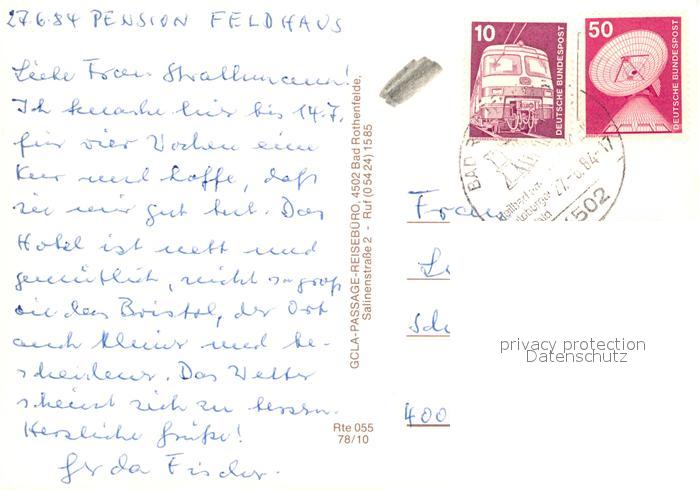 27.6.84 PENSION FELDHAUS
Liebe Frau Strathmann!
Ich mache hier bis 14.7.
für vier Wochen eine
Kur und hoffe, daß
sie mir gut tut. Das
Hotel ist nett und
gemütlich, nicht so groß
wie das Bristol, der Ort
auch kleiner und be-
scheidener. Das Wetter
scheint sich zu bessern.
Herzliche Grüße!
Gerda Fischer.
GCLA-PASSAGE-REISEBÜRO, 4502 Bad Rothenfelde,
Salinenstraße 2 - Ruf (0 54 24) 15 85
Rte 055
78/10
10
DEUTSCHE BUNDESPOST
50
DEUTSCHE BUNDESPOST
BAD
27.-6.84-17
4502
Frau
400
privacy protection
Datenschutz